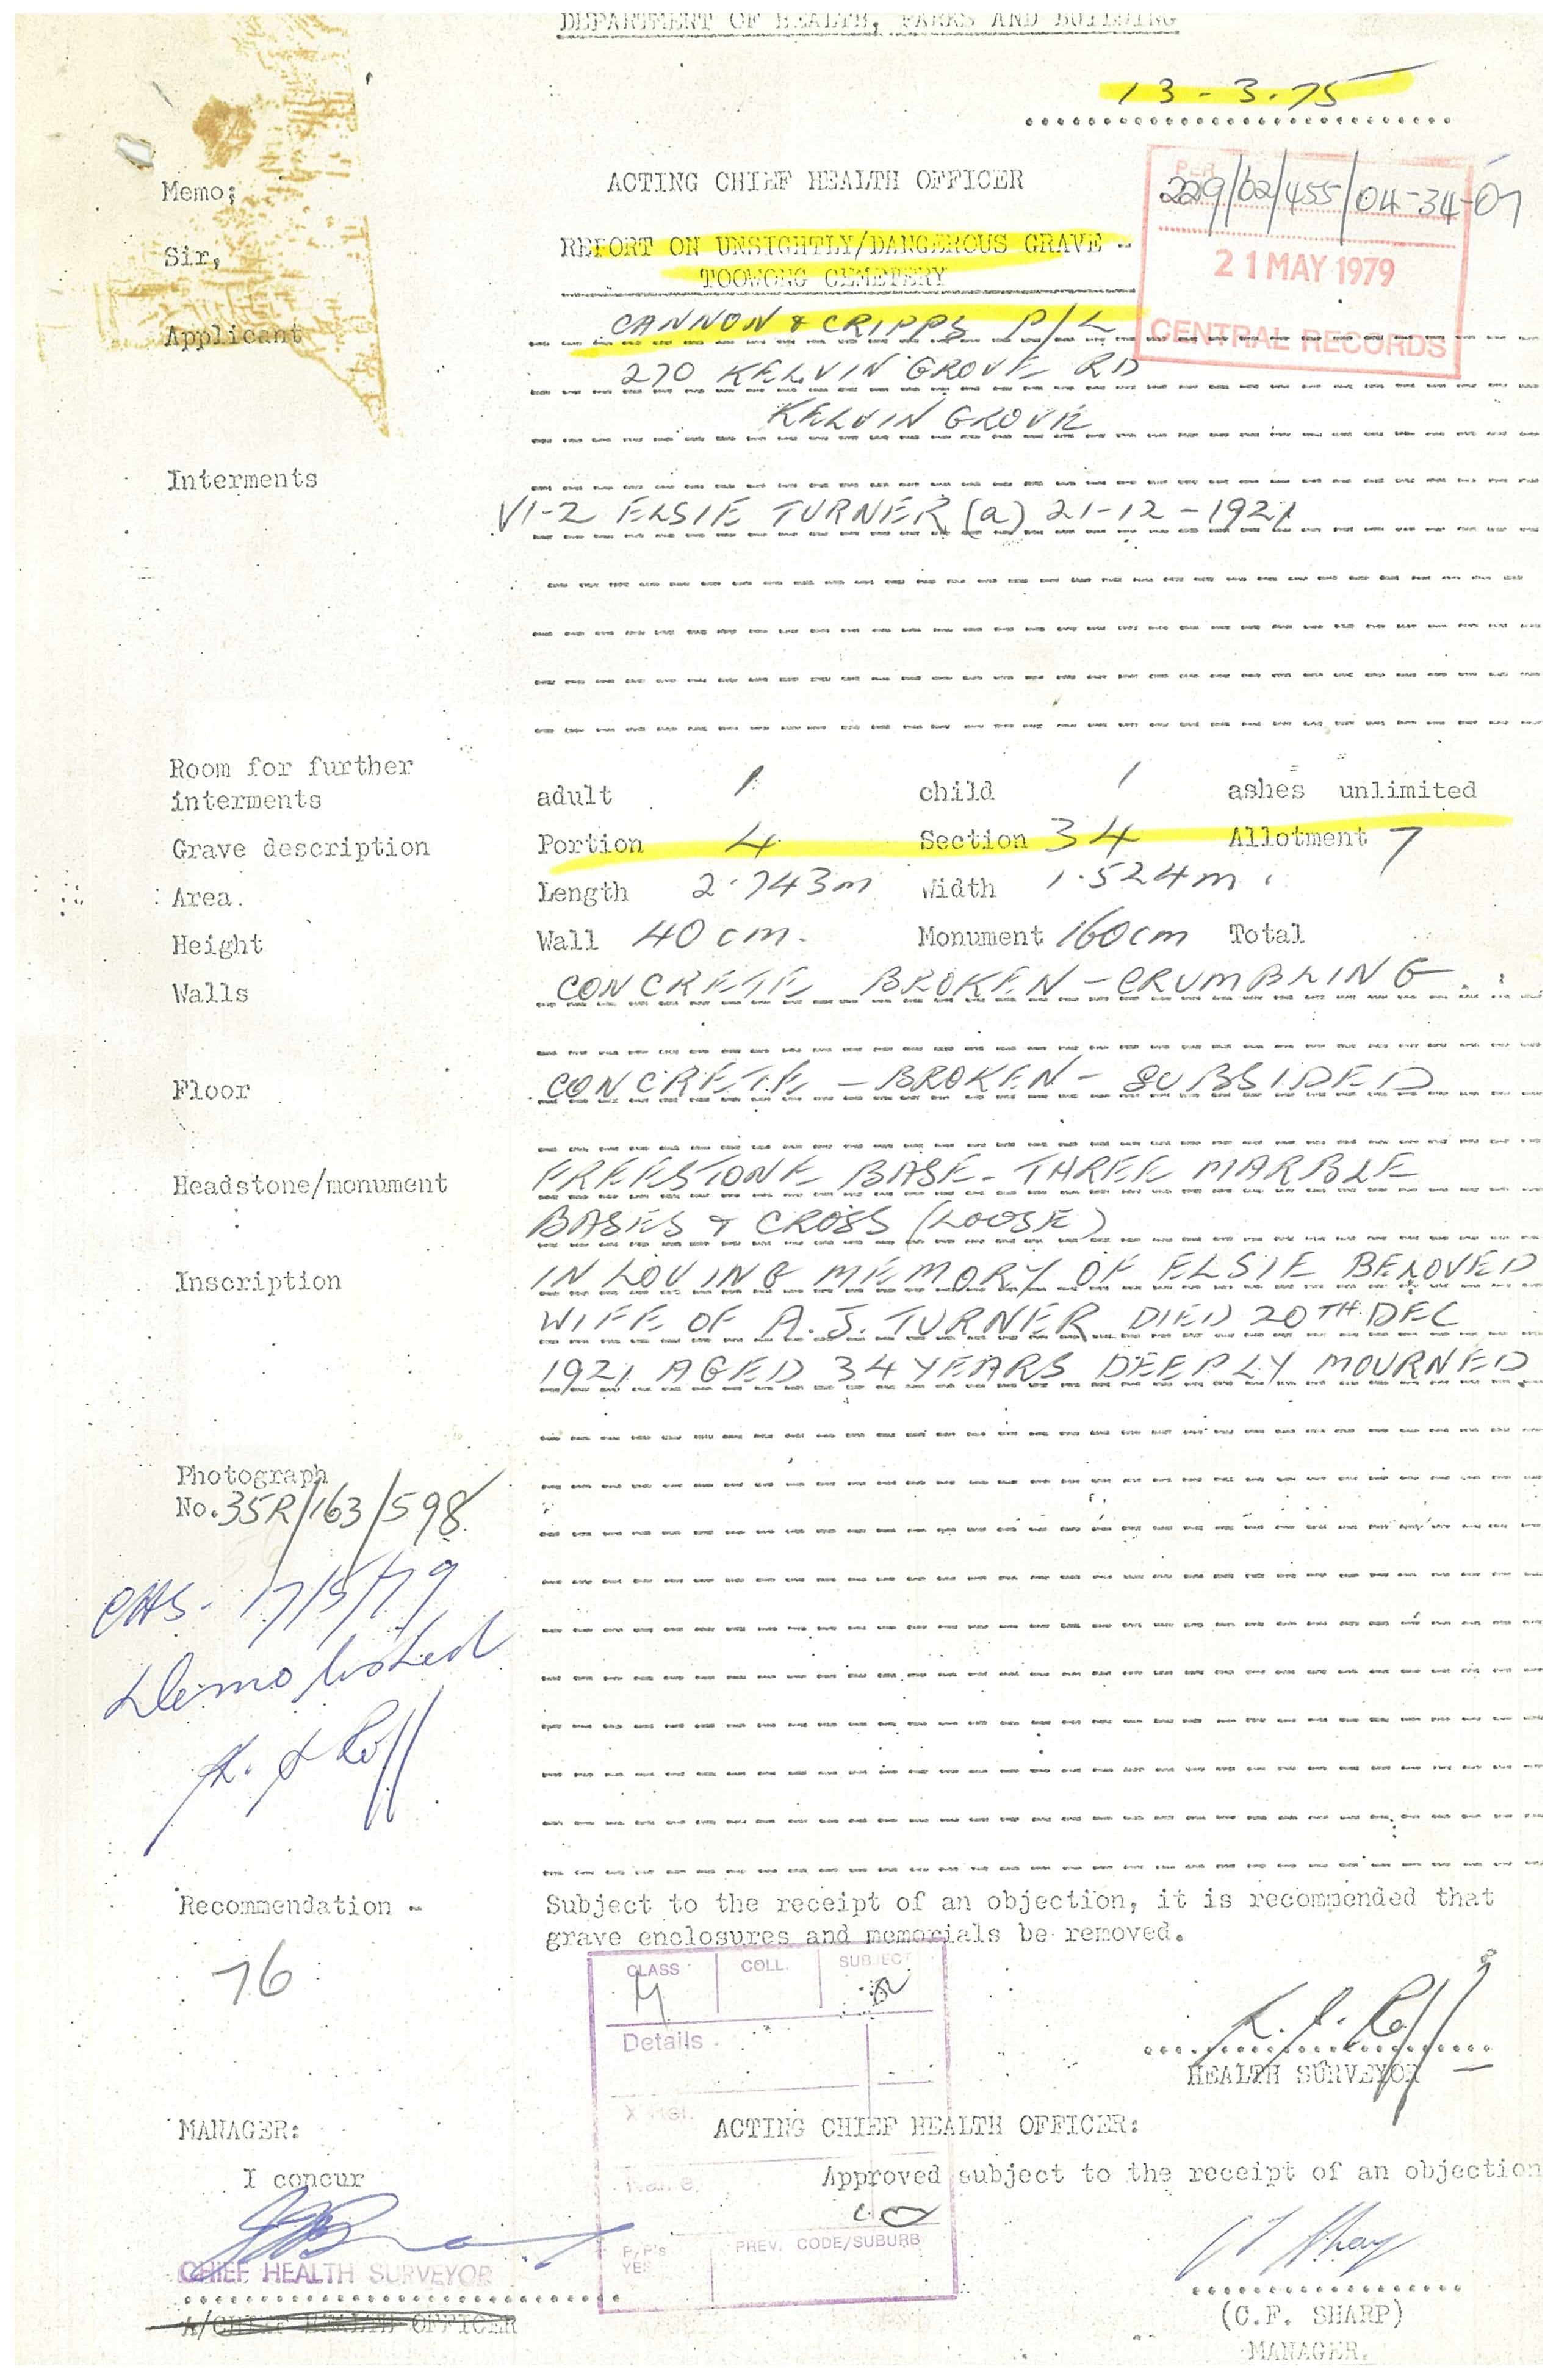 DEPARTMENT OF HEALTH, PARKS AND BUILDING
13-3-75
Memo;
ACTING CHIEF HEALTH OFFICER
229/62/455/04-34-07
Sir,
REPORT ON UNSIGHTLY/DANGEROUS GRAVE -
TOOWONG CEMETERY
21 MAY 1979
CENTRAL RECORDS
Applicant CANNON & CRIPPS P/L
270 KELVIN GROVE RD
KELVIN GROVE
Interments
V1-2 ELSIE TURNER (a) 21-12-1921
Room for further
interments adult 1 child 1 ashes unlimited
Grave description Portion 4 Section 34 Allotment 7
Area. Length 2.743m Width 1.524m.
Height Wall 40 cm. Monument 160cm Total
Walls CONCRETE BROKEN - CRUMBLING.
Floor CONCRETE - BROKEN - SUBSIDED
Headstone/monument FREESTONE BASE - THREE MARBLE
BASES & CROSS (LOOSE)
Inscription IN LOVING MEMORY OF ELSIE BELOVED
WIFE OF A.J. TURNER DIED 20TH DEC
1921 AGED 34 YEARS DEEPLY MOURNED
Photograph
No. 35R/163/598
17/5/79
Demolished
Recommendation - Subject to the receipt of an objection, it is recommended that
grave enclosures and memorials be removed.
76
CLASS COLL. SUBJECT
Details
HEALTH SURVEYOR
MANAGER: ACTING CHIEF HEALTH OFFICER:
I concur Approved subject to the receipt of an objection
Name
P/P's
YES
PREV. CODE/SUBURB
CHIEF HEALTH SURVEYOR
A/CHIEF HEALTH OFFICER
(C.F. SHARP)
MANAGER.